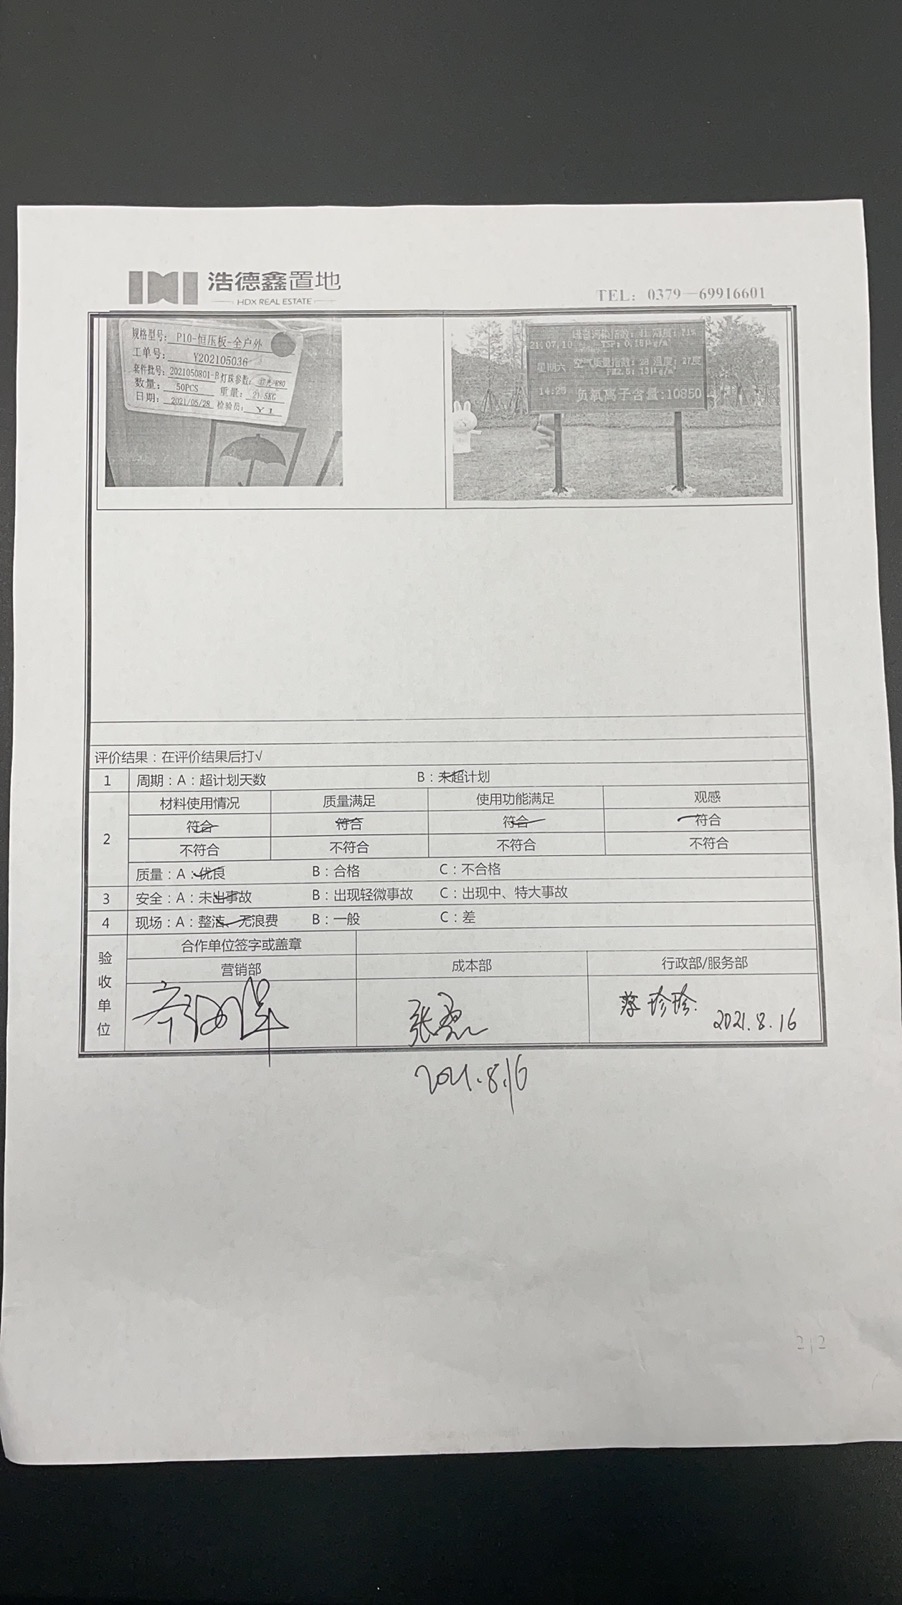 浩德鑫置地
HDX REAL ESTATE
TEL: 0379-69916601
规格型号: P10-恒压板-全户外
工单号: Y202105036
套件批号: 2021050801-B 灯珠参数:
数量: 50PCS 重量:
日期: 2021/05/28 检验员: Y1
21/07/10
星期六 空气质量指数: 28 温度: 27度
PM2.5: 15μg/m³
14:25 负氧离子含量:10850
评价结果：在评价结果后打√
1 周期：A：超计划天数 B：未超计划
2 材料使用情况 质量满足 使用功能满足 观感
符合 符合 符合 符合
不符合 不符合 不符合 不符合
质量：A：优良 B：合格 C：不合格
3 安全：A：未出事故 B：出现轻微事故 C：出现中、特大事故
4 现场：A：整洁、无浪费 B：一般 C：差
验收单位
合作单位签字或盖章
营销部 成本部 行政部/服务部
蔡珍珍
2021.8.16
2021.8.16
2|2